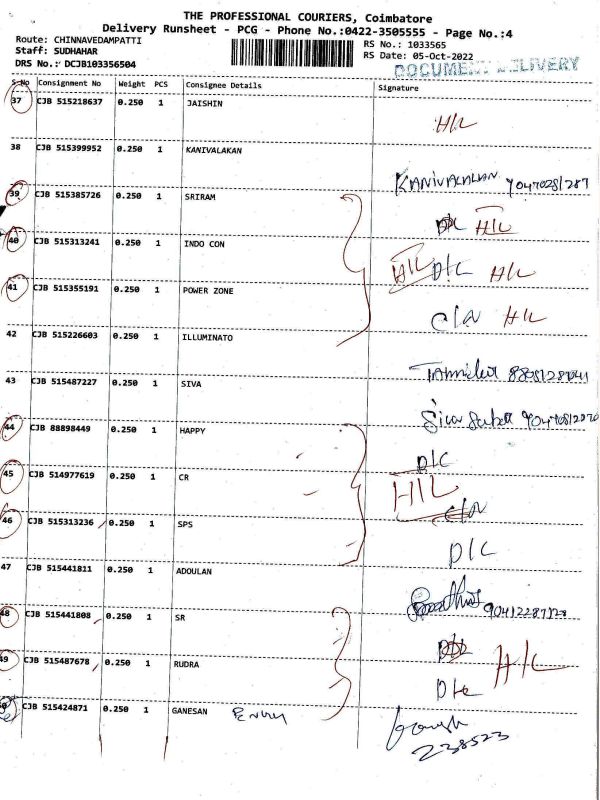 THE PROFESSIONAL COURIERS, Coimbatore
Delivery Runsheet - PCG - Phone No.:0422-3505555 - Page No.:4
Route: CHINNAVEDAMPATTI RS No.: 1033565
Staff: SUDHAHAR RS Date: 05-Oct-2022
DRS No.: DCJB103356504 DOCUMENT DELIVERY
S No Consignment No Weight PCS Consignee Details Signature
37 CJB 515218637 0.250 1 JAISHIN H/L
38 CJB 515399952 0.250 1 KANIVALAKAN KANIVALALAN
39 CJB 515385726 0.250 1 SRIRAM D/C H/L
40 CJB 515313241 0.250 1 INDO CON H/L D/C H/L
41 CJB 515355191 0.250 1 POWER ZONE H/L
42 CJB 515226603 0.250 1 ILLUMINATO
43 CJB 515487227 0.250 1 SIVA Siva
44 CJB 88898449 0.250 1 HAPPY D/C
45 CJB 514977619 0.250 1 CR H/L
46 CJB 515313236 0.250 1 SPS D/C
47 CJB 515441811 0.250 1 ADOULAN
48 CJB 515441808 0.250 1 SR H/L
49 CJB 515487678 0.250 1 RUDRA D/C
CJB 515424871 0.250 1 GANESAN 238523